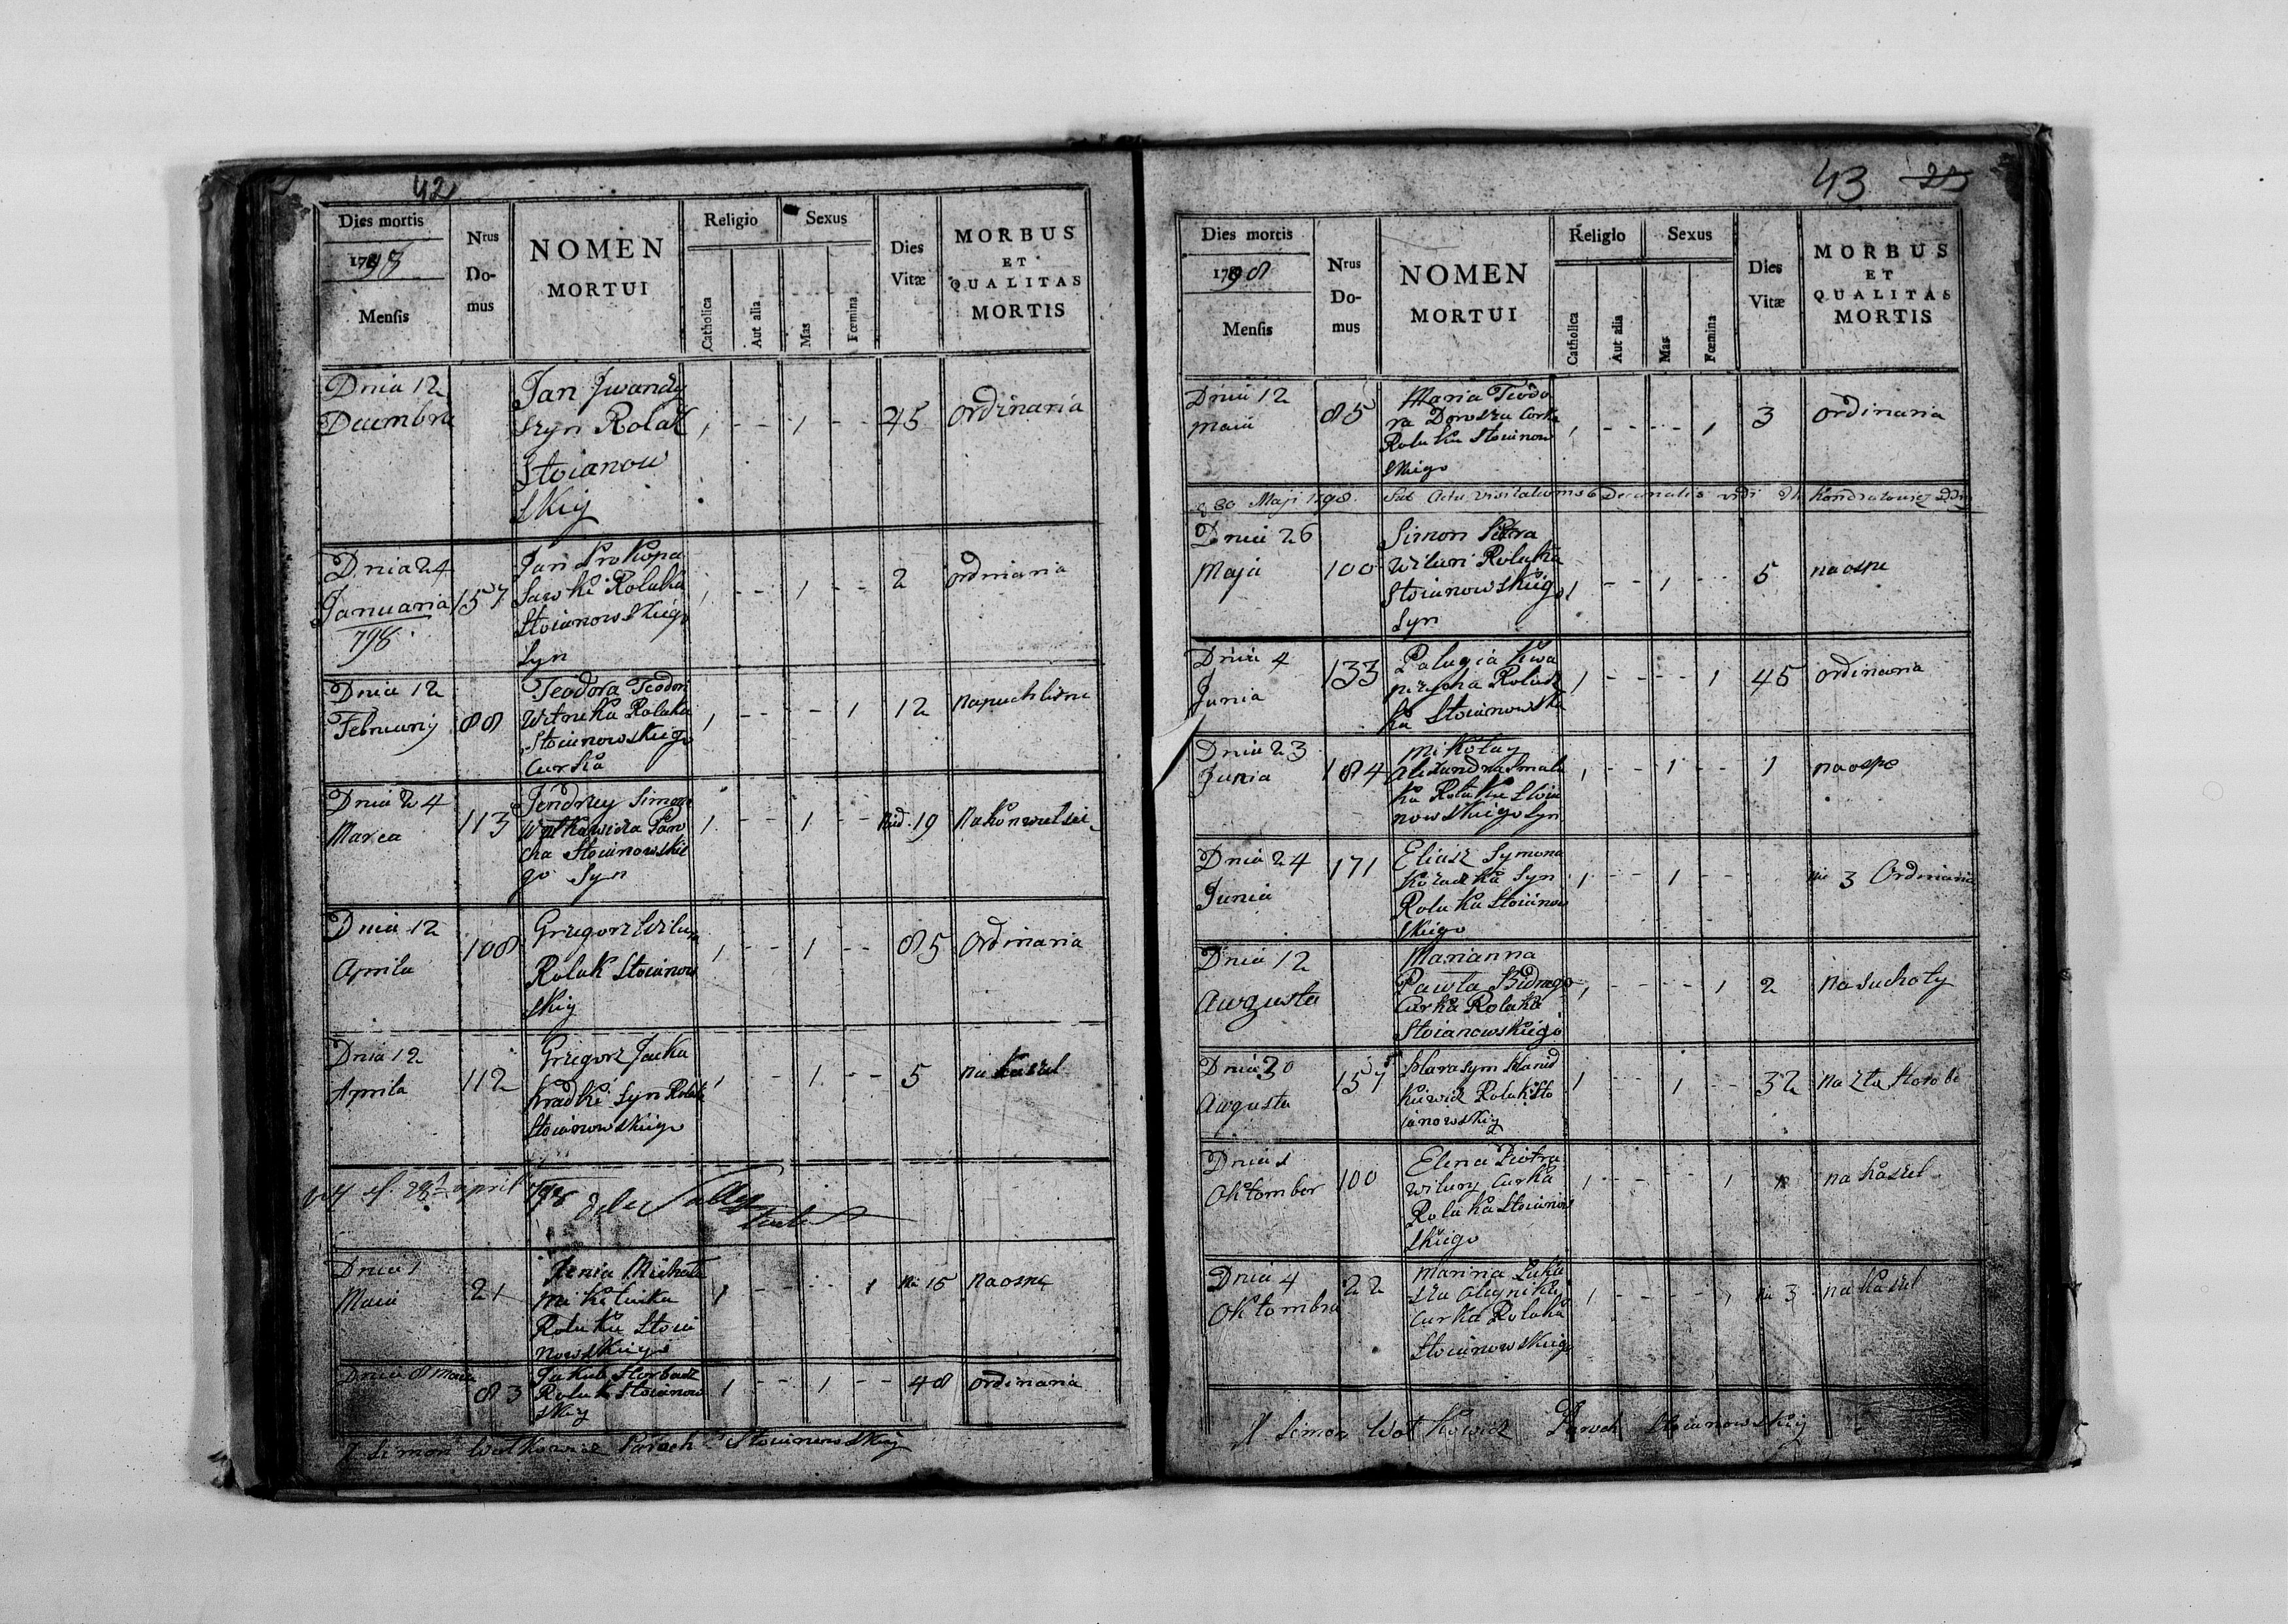 42
Dies mortis
1797
Mensis
Nrus
Do-
mus
NOMEN
MORTUI
Religio
Catholica
Aut alia
Sexus
Mas
Fœmina
Dies
Vitæ
MORBUS
ET
QUALITAS
MORTIS
Dnia 12
Decembra
Jan Jwandy
szyn Rolak
Stoianow
skiy
1 - - 1 - -
45
ordinaria
Dnia 24
Januaria
798
157
Jan Prokopa
Sawki Rolaka
Stoianowskiego
Syn
1 - - 1 - -
2
ordinaria
Dnia 12
Februarij
88
Teodora Teodori
Witnika Rolaka
Stoianowskiego
Curka
1 - - - - 1
12
Napuchline
Dnia 24
Marca
113
Jendrzey Simona
Wolkowicza Paro
cha Stoianowskie
go Syn
1 - - 1 - -
Nied. 19
Na konwulsie
Dnia 12
Aprila
108
Grzegorz Wilun
Rolak Stoianow
skiy
1 - - 1 - -
85
Ordinaria
Dnia 12
Aprila
112
Grzegorz Jacka
Kradki Syn Rolaka
Stoianowskiego
1 - - 1 - -
5
na kaszel
28 april 798
Dnia 1
Maia
21
Xenia Michala
Mikitiuka
Rolaka Stoia
nowskiego
1 - - - - 1
Ni 15
Na ospę
Dnia 8 Maia
83
Jakub
Rolak Stoianow
skiy
1 - - 1 - -
48
ordinaria
Simon Wolkowicz Paroch Stoianowskiy
43 25
Dies mortis
1798
Mensis
Nrus
Do-
mus
NOMEN
MORTUI
Religio
Catholica
Aut alia
Sexus
Mas
Fœmina
Dies
Vitæ
MORBUS
ET
QUALITAS
MORTIS
Dnia 12
Maii
85
Maria Teodo
ra Dorosza Corka
Rolaka Stoianow
skiego
1 - - - - 1
3
ordinaria
30 Maji 1798. Sub Actu Visitationis Decanalis vidi Kondratowicz
Dnia 26
Maja
100
Simon Piotra
Wiluni Rolaka
Stoianowskiego
Syn
1 - - 1 - -
5
na ospe
Dnia 4
Junia
133
Palagia Kwa
Rolacz
ka Stoianowska
1 - - - - 1
45
ordinaria
Dnia 23
Junia
184
Mikolay
Alexandra Smala
ka Rolaka Stoia
nowskiego Syn
1 - - 1 - -
1
na ospe
Dnia 24
Junia
171
Eliasz Symona
Kozaczka Syn
Rolaka Stoianow
skiego
1 - - 1 - -
Nie 3 Ordinaria
Dnia 12
Awgusta
Marianna
Pawla
Curka Rolaka
Stoianowskiego
1 - - - - 1
2
Na suchoty
Dnia 30
Awgusta
157
Harasym
Rolak Sto
ianowskiy
1 - - 1 - -
32
Dnia 1
Oktomber
100
Elena Piotra
Wiluny Curka
Rolaka Stoianow
skiego
1 - - - - 1
na kaszel
Dnia 4
Oktombra
22
Marina Luka
sza Oleynika
Curka Rolaka
Stoianowskiego
1 - - - - 1
Nie 3
na kaszel
Simon Wolkowicz Paroch Stoianowskiy